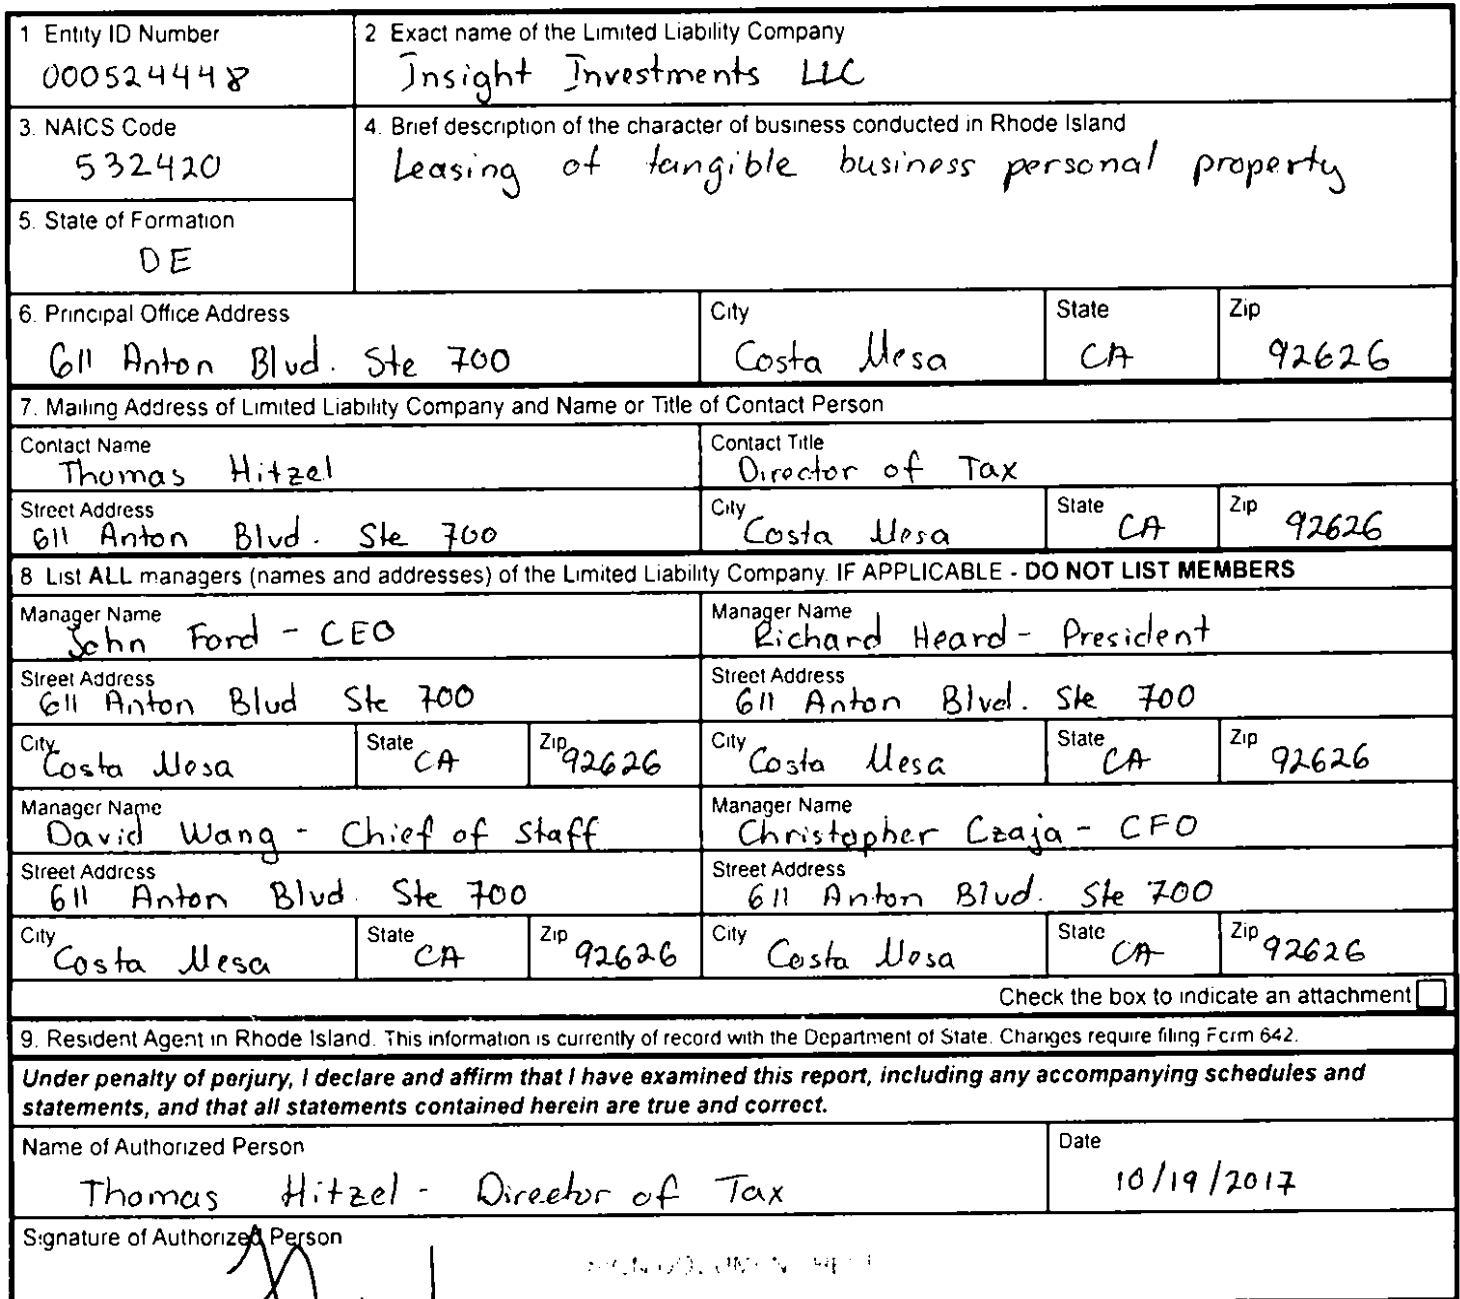 1 Entity ID Number
000524448
2 Exact name of the Limited Liability Company
Insight Investments LLC
3. NAICS Code
532420
4. Brief description of the character of business conducted in Rhode Island
Leasing of tangible business personal property
5. State of Formation
DE
6. Principal Office Address
611 Anton Blvd. Ste 700
City
Costa Mesa
State
CA
Zip
92626
7. Mailing Address of Limited Liability Company and Name or Title of Contact Person
Contact Name
Thomas Hitzel
Contact Title
Director of Tax
Street Address
611 Anton Blvd. Ste 700
City
Costa Mesa
State
CA
Zip
92626
8 List ALL managers (names and addresses) of the Limited Liability Company. IF APPLICABLE - DO NOT LIST MEMBERS
Manager Name
John Ford - CEO
Manager Name
Richard Heard - President
Street Address
611 Anton Blvd Ste 700
Street Address
611 Anton Blvd. Ste 700
City
Costa Mesa
State
CA
Zip
92626
City
Costa Mesa
State
CA
Zip
92626
Manager Name
David Wang - Chief of Staff
Manager Name
Christopher Czaja - CFO
Street Address
611 Anton Blvd. Ste 700
Street Address
611 Anton Blvd. Ste 700
City
Costa Mesa
State
CA
Zip
92626
City
Costa Mesa
State
CA
Zip
92626
Check the box to indicate an attachment
9. Resident Agent in Rhode Island. This information is currently of record with the Department of State. Changes require filing Form 642.
Under penalty of perjury, I declare and affirm that I have examined this report, including any accompanying schedules and
statements, and that all statements contained herein are true and correct.
Name of Authorized Person
Thomas Hitzel - Director of Tax
Date
10/19/2017
Signature of Authorized Person